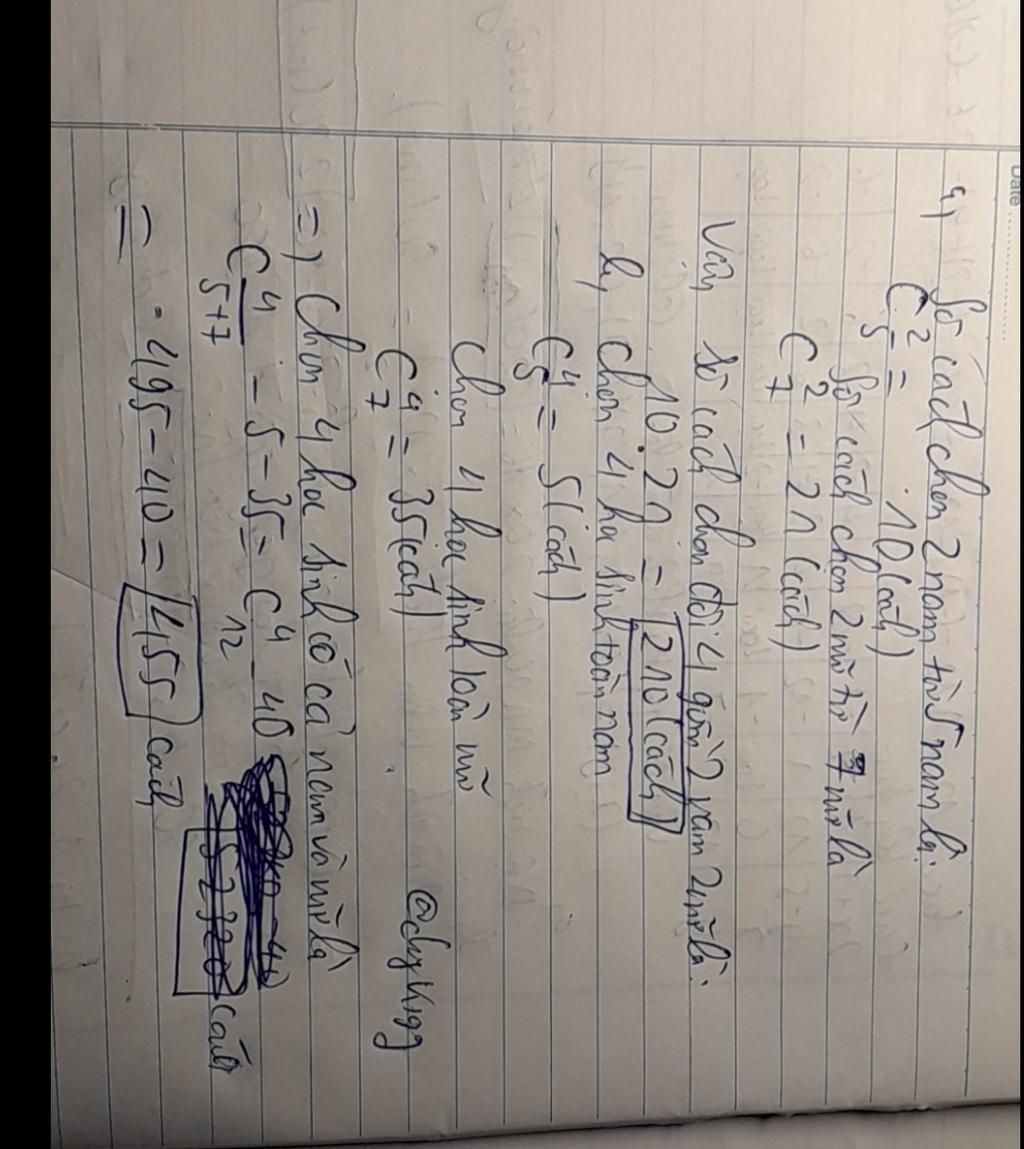 Date ............
a, Số cách chọn 2 nam từ 5 nam là:
C²₅ = 10 (cách)
Số cách chọn 2 nữ từ 7 nữ là
C²₇ = 21 (cách)
Vậy số cách chọn đội 4 gồm 2 nam 2 nữ là:
10.21 = 210 (cách)
b, Chọn 4 học sinh toàn nam
C⁴₅ = 5 (cách)
Chọn 4 học sinh toàn nữ
C⁴₇ = 35 (cách)
=) Chọn 4 học sinh có cả nam và nữ là
C⁴₅₊₇ - 5 - 35 = C⁴₁₂ - 40
cách
= 495 - 40 = 455 cách